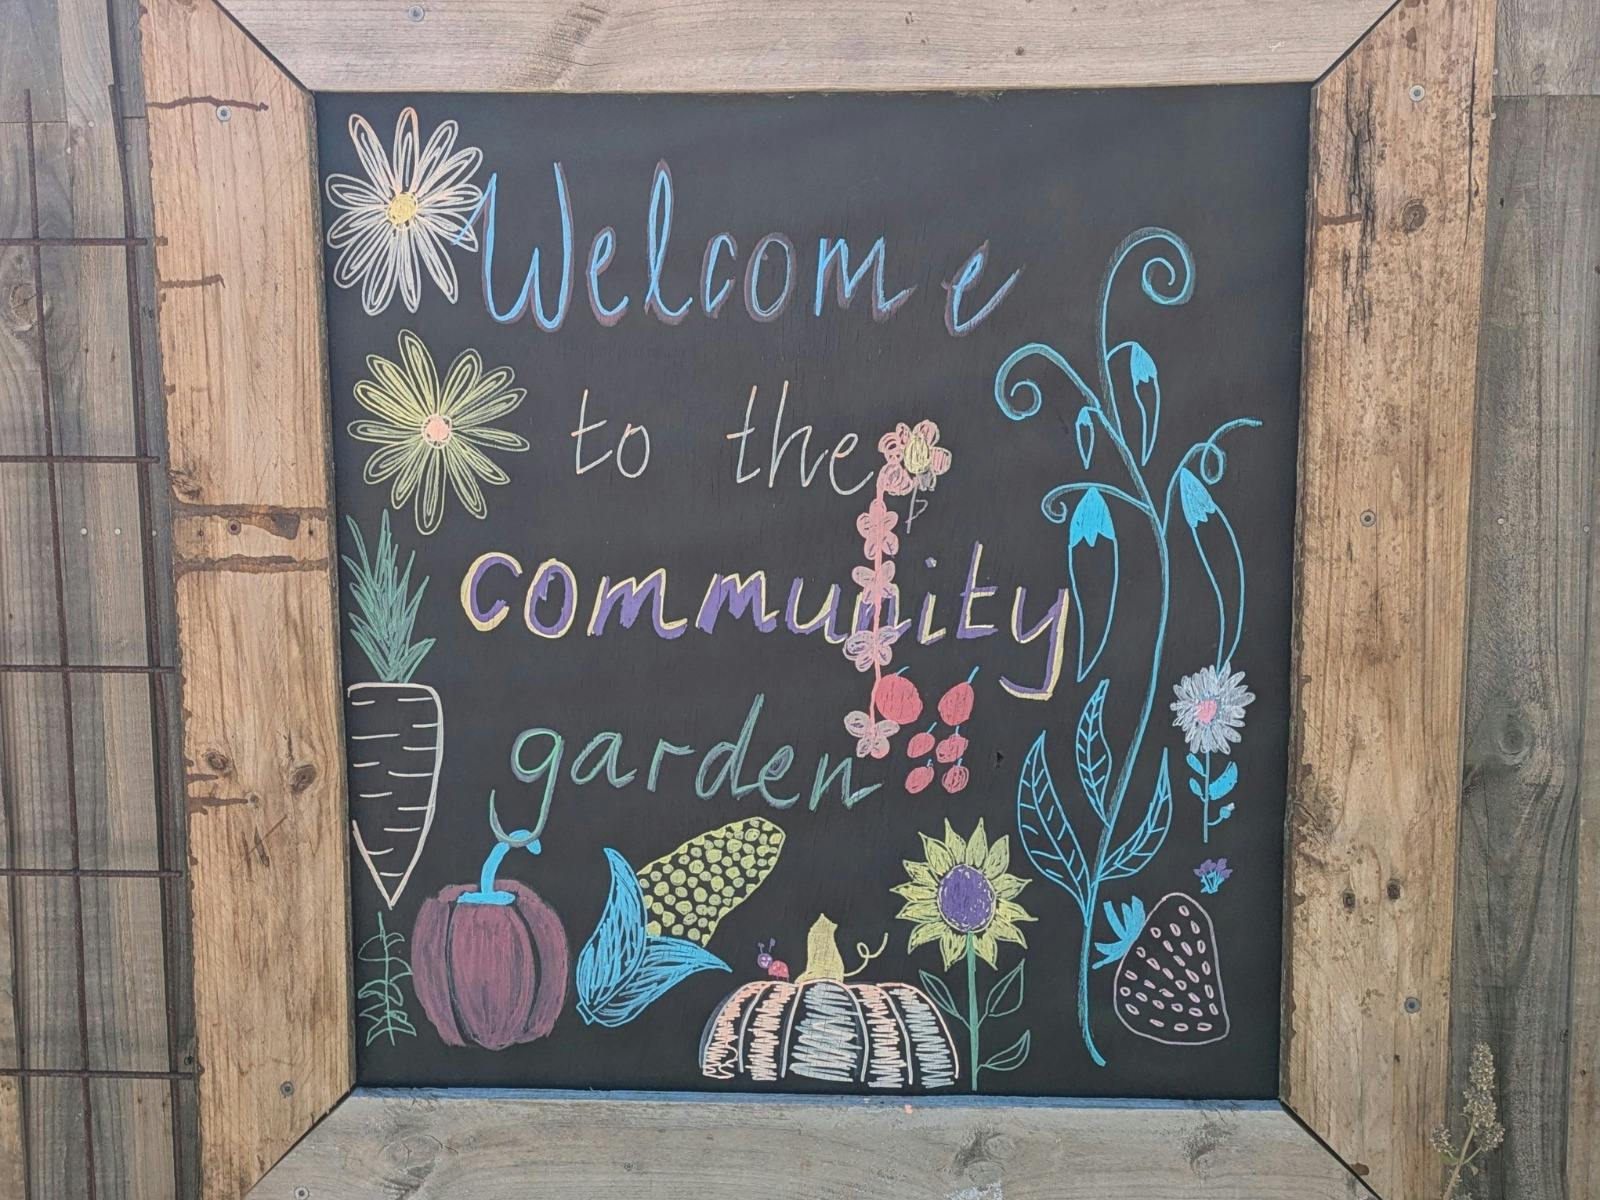 Welcome
to the
community
garden